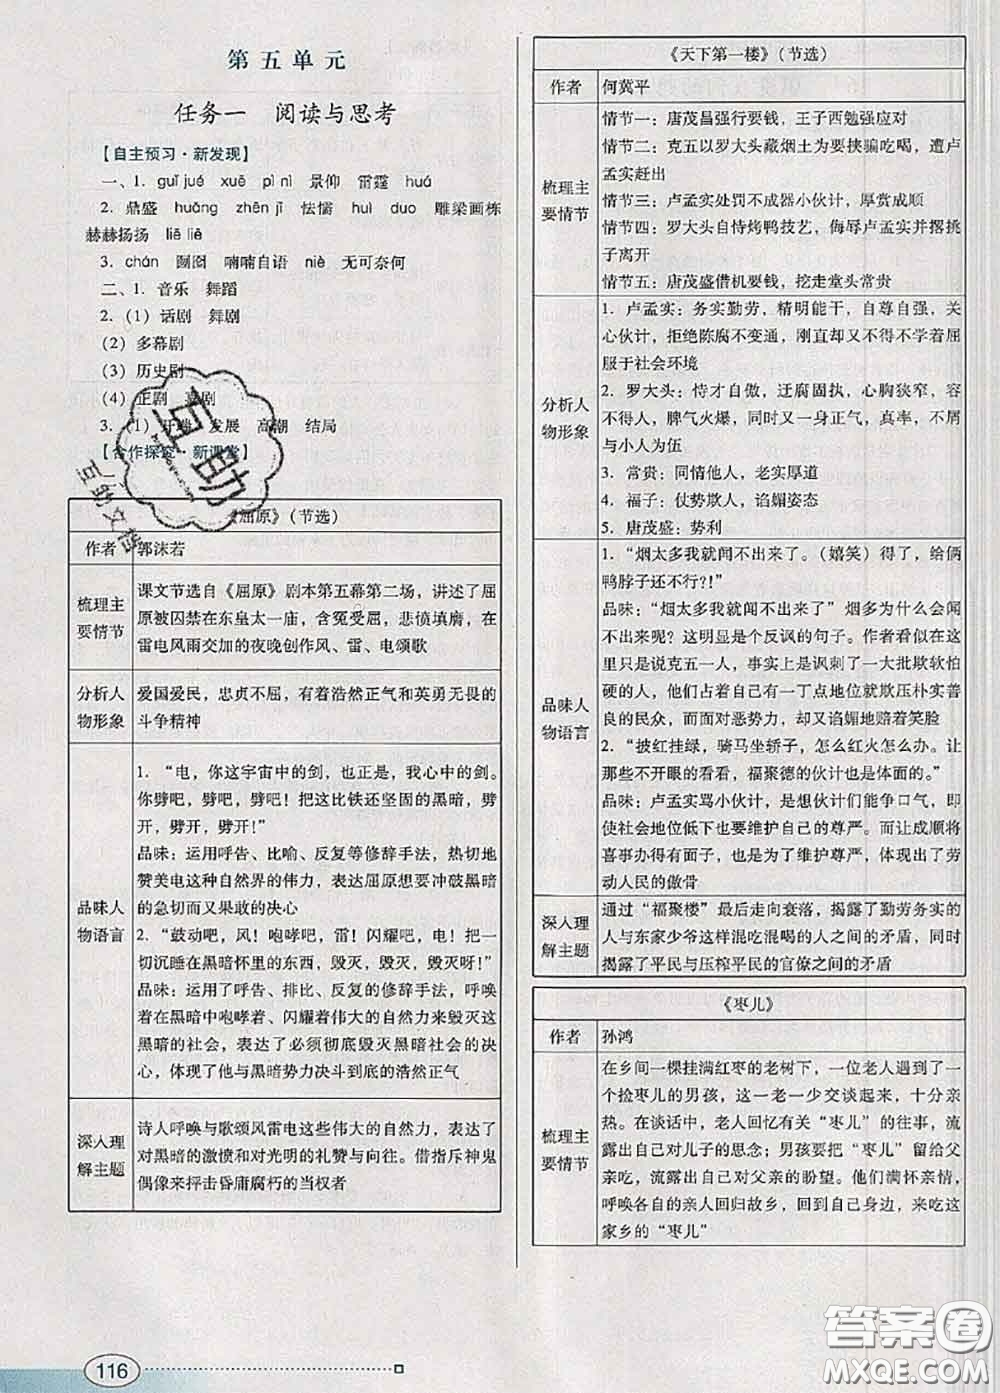 第五单元
任务一 阅读与思考
【自主预习·新发现】
一、1. guī jué xuē pì nì 景仰 雷霆 huá
2. 鼎盛 huǎng zhēn jī 怯懦 huì duo 雕梁画栋
赫赫扬扬 liē liē
3. chán 囫囵 喃喃自语 niè 无可奈何
二、1. 音乐 舞蹈
2.(1)话剧 舞剧
(2)多幕剧
(3)历史剧
(4)正剧 喜剧
3.(1)开端 发展 高潮 结局
【合作探究·新课堂】
《屈原》(节选)
作者 郭沫若
梳理主要情节
课文节选自《屈原》剧本第五幕第二场,讲述了屈
原被囚禁在东皇太一庙,含冤受屈,悲愤填膺,在
雷电风雨交加的夜晚创作风、雷、电颂歌
分析人物形象
爱国爱民,忠贞不屈,有着浩然正气和英勇无畏的
斗争精神
品味人物语言
1.“电,你这宇宙中的剑,也正是,我心中的剑。
你劈吧,劈吧,劈吧!把这比铁还坚固的黑暗,劈
开,劈开,劈开!”
品味:运用呼告、比喻、反复等修辞手法,热切地
赞美电这种自然界的伟力,表达屈原想要冲破黑暗
的急切而又果敢的决心
2.“鼓动吧,风!咆哮吧,雷!闪耀吧,电!把一
切沉睡在黑暗怀里的东西,毁灭,毁灭,毁灭呀!”
品味:运用了呼告、排比、反复的修辞手法,呼唤
着在黑暗中咆哮着、闪耀着伟大的自然力来毁灭这
黑暗的社会,表达了必须彻底毁灭黑暗社会的决
心,体现了他与黑暗势力决斗到底的浩然正气
深入理解主题
诗人呼唤与歌颂风雷电这些伟大的自然力,表达了
对黑暗的激愤和对光明的礼赞与向往。借指斥神鬼
偶像来抨击昏庸腐朽的当权者
《天下第一楼》(节选)
作者 何冀平
梳理主要情节
情节一:唐茂昌强行要钱,王子西勉强应对
情节二:克五以罗大头藏烟土为要挟骗吃喝,遭卢
孟实赶出
情节三:卢孟实处罚不成器小伙计,厚赏成顺
情节四:罗大头自恃烤鸭技艺,侮辱卢孟实并撂挑
子离开
情节五:唐茂盛借机要钱,挖走堂头常贵
分析人物形象
1. 卢孟实:务实勤劳,精明能干,自尊自强,关
心伙计,拒绝陈腐不变通,刚直却又不得不学会屈
服于社会环境
2. 罗大头:恃才自傲,迂腐固执,心胸狭窄,容
不得人,脾气火爆,同时又一身正气,真率,不屑
与小人为伍
3. 常贵:同情他人,老实厚道
4. 福子:仗势欺人,谄媚姿态
5. 唐茂盛:势利
品味人物语言
1.“烟太多我就闻不出来了。(嬉笑)得了,给俩
鸭脖子还不行?!”
品味:“烟太多我就闻不出来了”烟多为什么会闻
不出来呢?这明显是个反讽的句子。作者看似在这
里只是说克五一人,事实上是讽刺了一大批欺软怕
硬的人,他们占着自己有一丁点地位就欺压朴实善
良的民众,而面对恶势力,却又谄媚地赔着笑脸
2.“披红挂绿,骑马坐轿子,怎么红火怎么办。让
那些不开眼的看看,福聚德的伙计也是体面的。”
品味:卢孟实骂小伙计,是想伙计们能争口气,即
使社会地位低下也要维护自己的尊严。而让成顺将
喜事办得有面子,也是为了维护尊严,体现出了劳
动人民的傲骨
深入理解主题
通过“福聚楼”最后走向衰落,揭露了勤劳务实的
人与东家少爷这样混吃混喝的人之间的矛盾,同时
揭露了平民与压榨平民的官僚之间的矛盾
《枣儿》
作者 孙鸿
梳理主要情节
在乡间一棵挂满红枣的老树下,一位老人遇到了一
个捡枣儿的男孩,这一老一少交谈起来,十分亲
热。在谈话中,老人回忆有关“枣儿”的往事,流
露出自己对儿子的思念;男孩要把“枣儿”留给父
亲吃,流露出自己对父亲的盼望。他们满怀亲情,
呼唤各自的亲人回归故乡,回到自己身边,来吃这
家乡的“枣儿”
116
互助
互助文档
答案圈
MXQE.COM